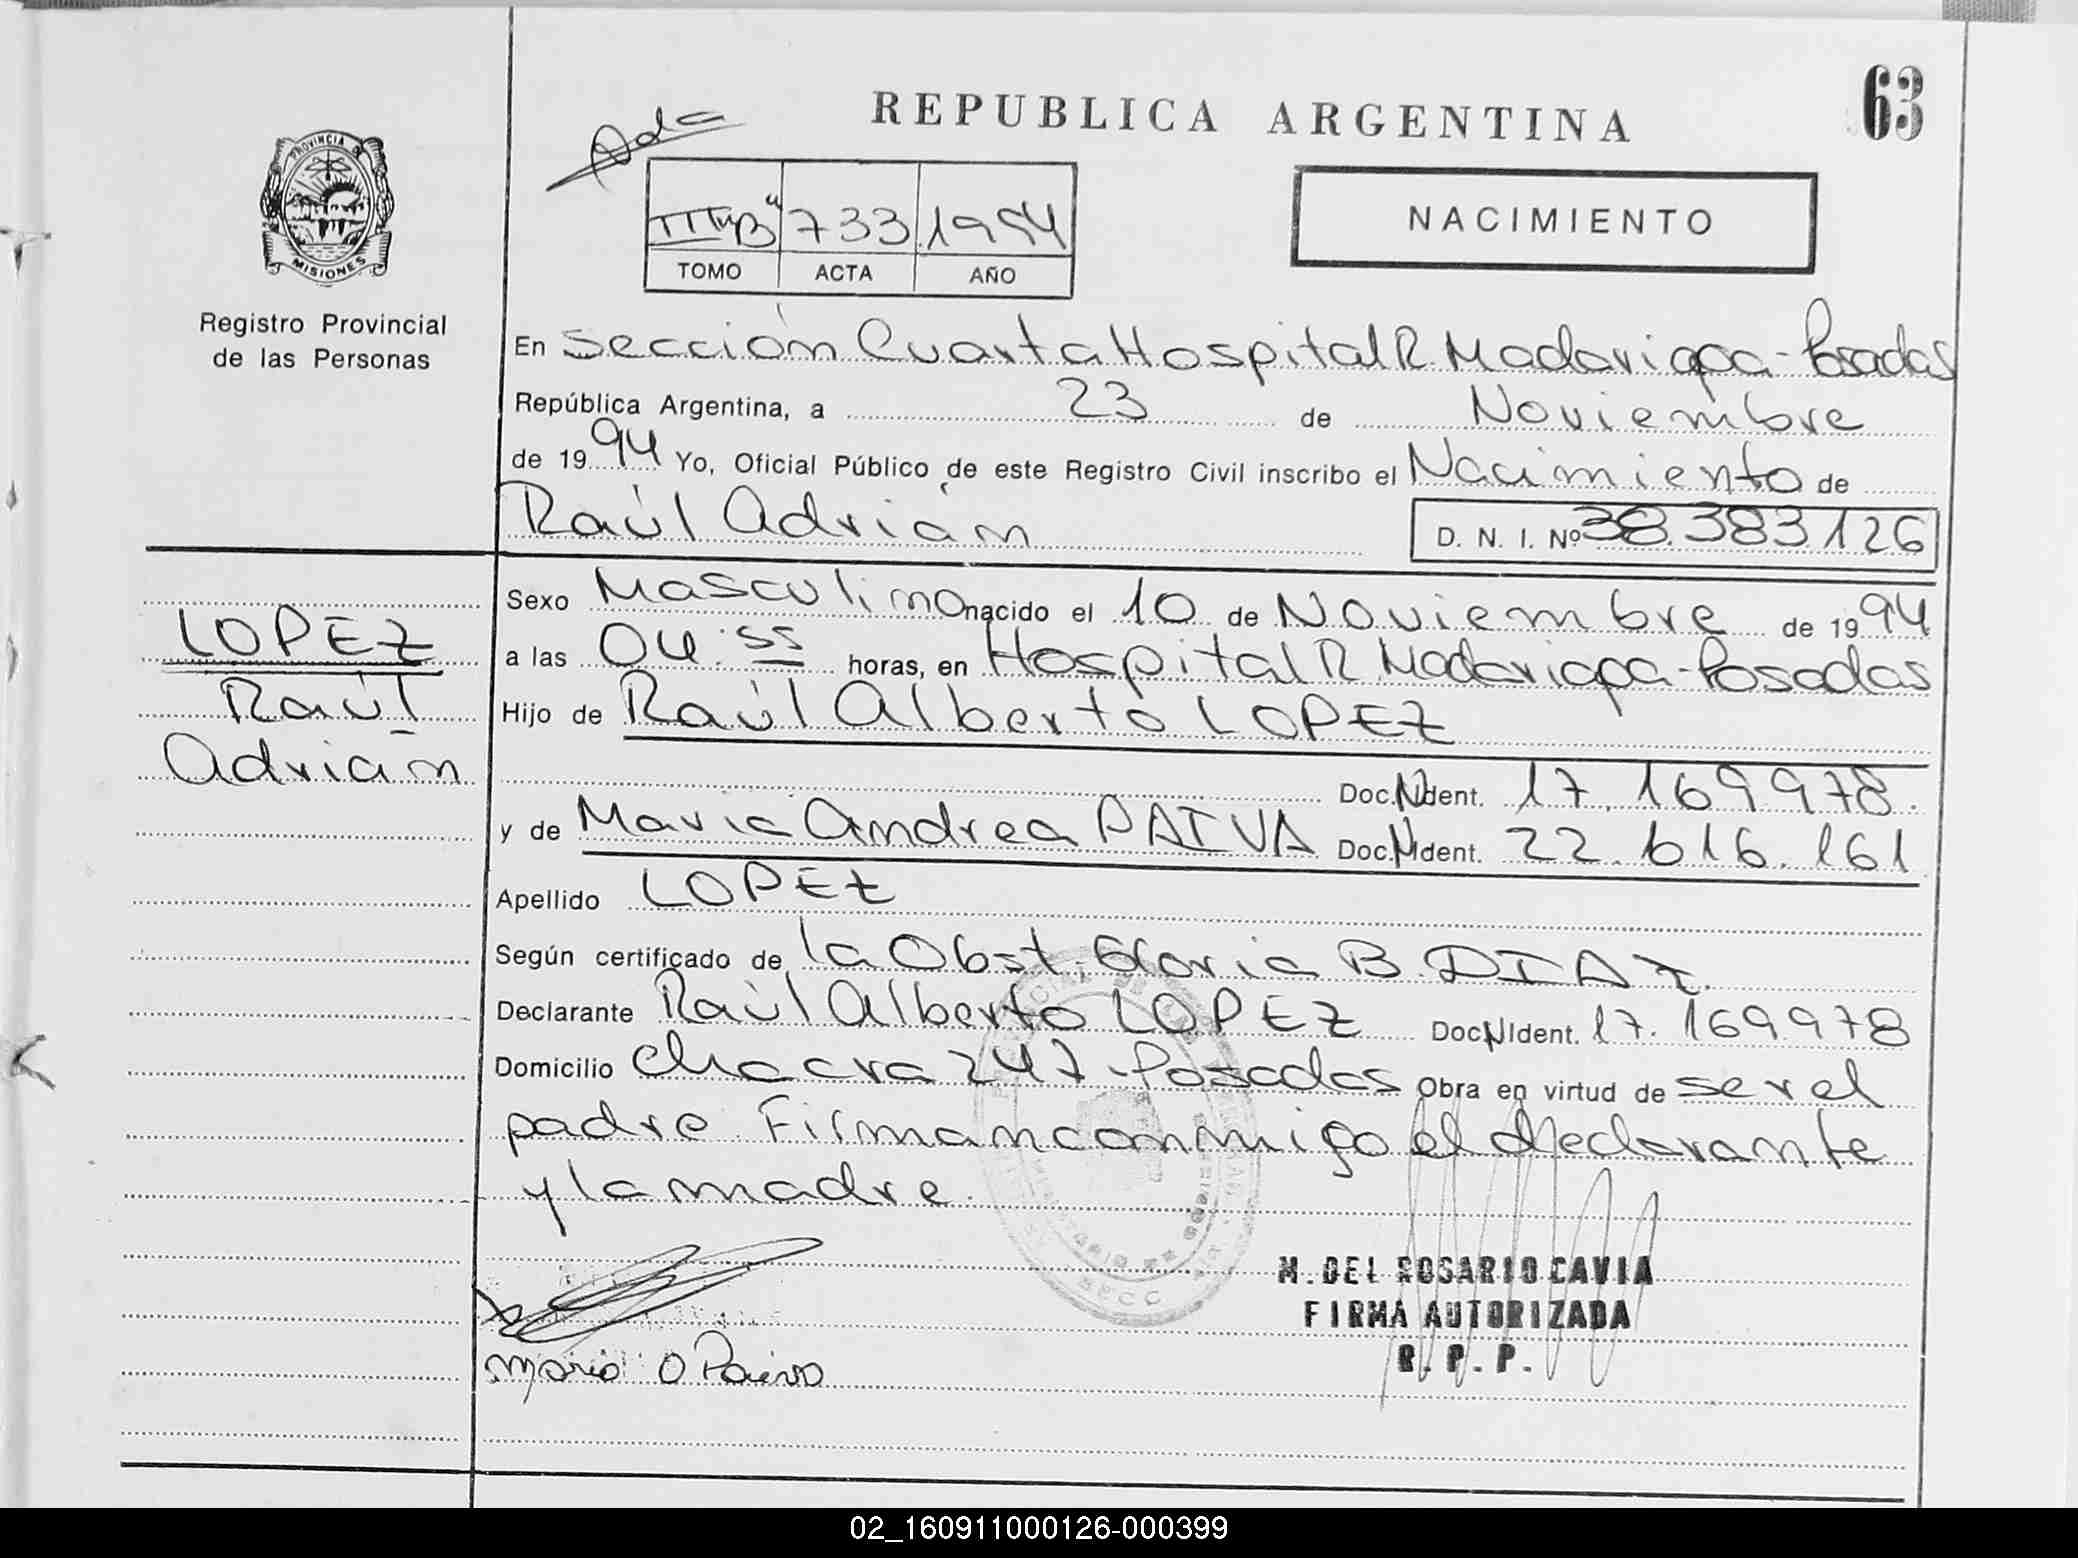 REPUBLICA ARGENTINA
63
PROVINCIA DE
MISIONES
Registro Provincial
de las Personas
Ada
III "B" 733 1994
TOMO ACTA AÑO
NACIMIENTO
En Sección Cuarta Hospital R. Madariaga - Posadas
República Argentina, a 23 de Noviembre
de 1994 Yo, Oficial Público de este Registro Civil inscribo el Nacimiento de
Raúl Adrián D. N. I. Nº 38.383.126
LOPEZ
Raúl
Adrián
Sexo Masculino nacido el 10 de Noviembre de 1994
a las 04:55 horas, en Hospital R. Madariaga - Posadas
Hijo de Raúl Alberto LOPEZ
Doc. N Ident. 17.169.978.
y de Maria Andrea PAIVA Doc. N Ident. 22.616.161
Apellido LOPEZ
Según certificado de la Obst. Gloria B. DIAZ.
Declarante Raúl Alberto LOPEZ Doc. N Ident. 17.169.978
Domicilio Chacra 247 - Posadas Obra en virtud de ser el
padre. Firman conmigo el declarante
y la madre.
M. DEL ROSARIO CAVIA
FIRMA AUTORIZADA
R. P. P.
Maria A Paiva
02_160911000126-000399